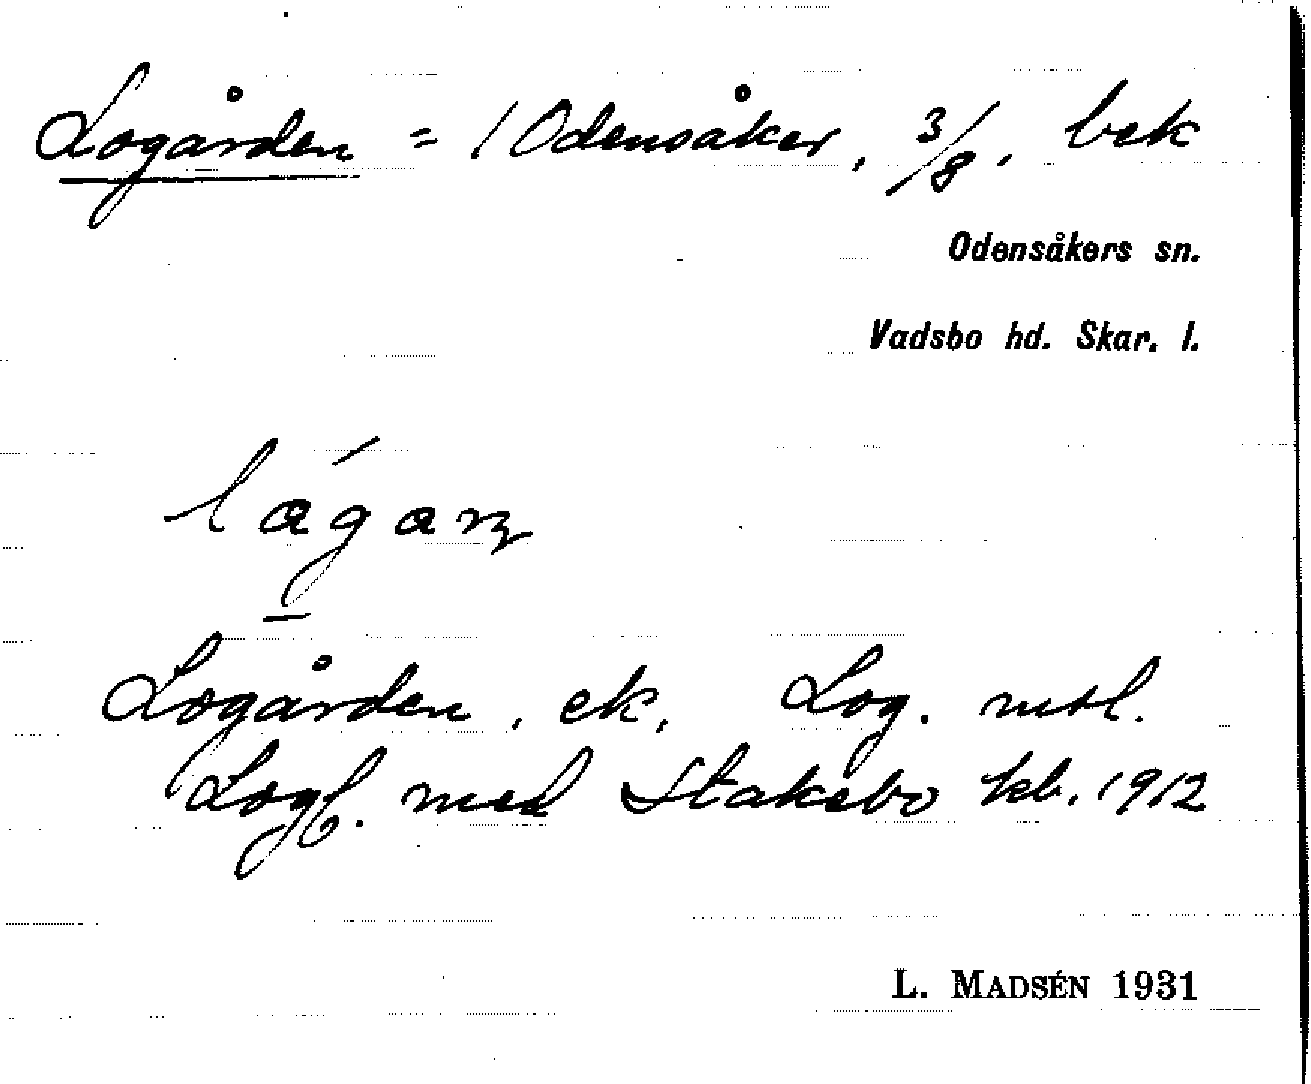 Logården = 1 Odensåker, 3/8. bek
Odensåkers sn.
Vadsbo hd. Skar. l.
Logården, ek, Log. msl.
Logf. med Stakebo kb. 1912
L. MADSÉN 1931